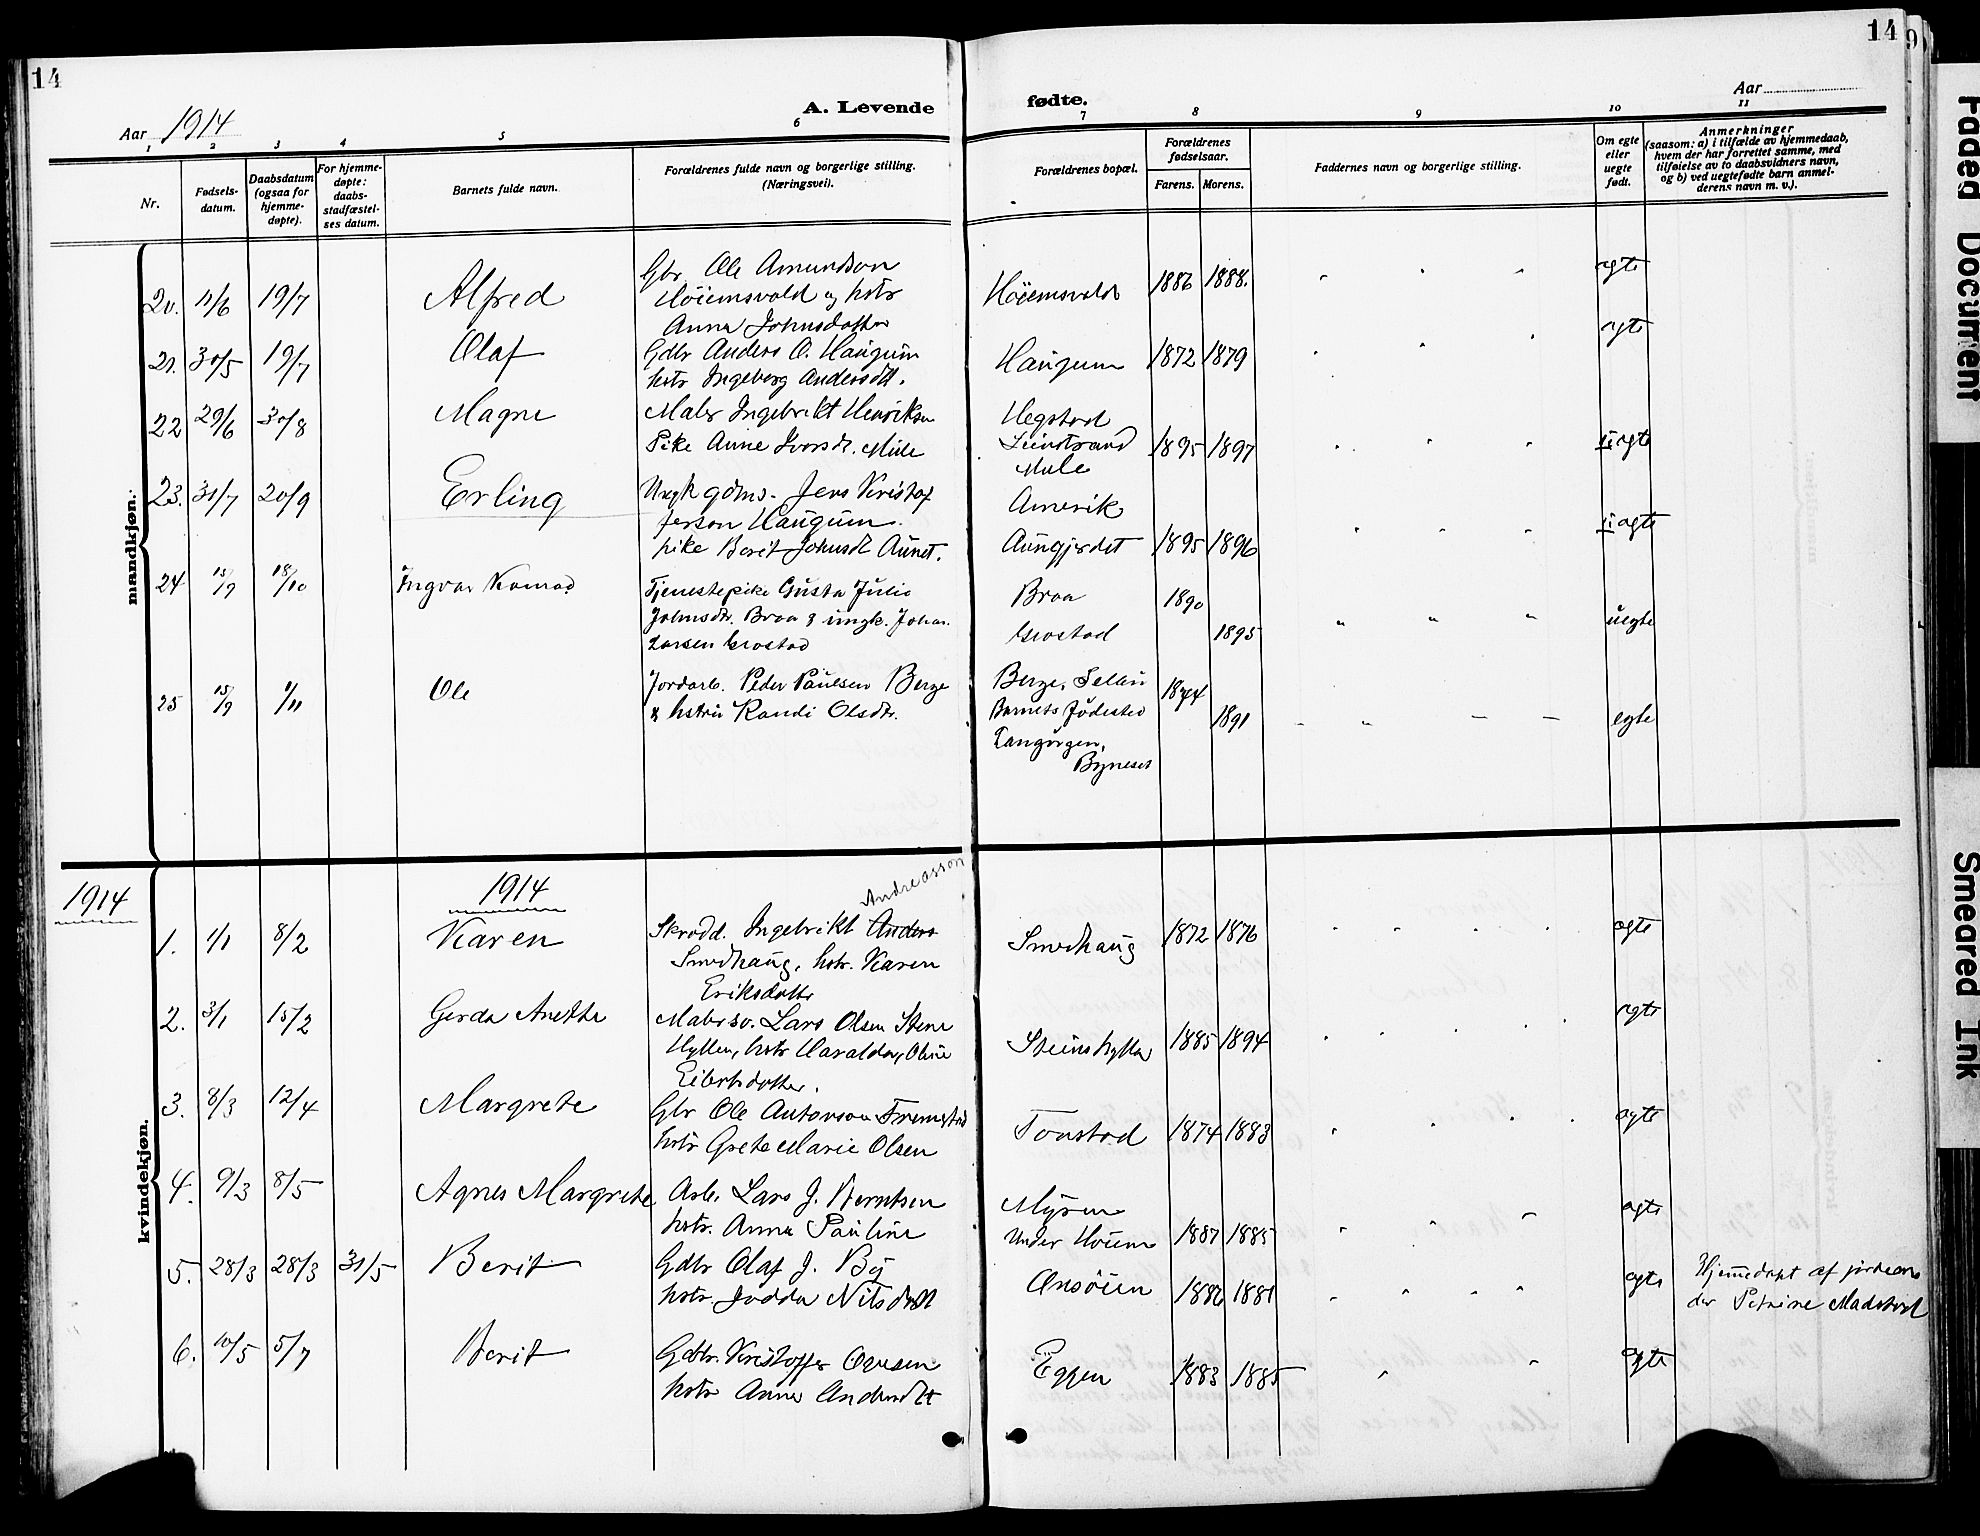 14
14
9
Aar 1914
A. Levende
fødte.
Aar
1 2 3 4 5 6 7 8 9 10 11
Nr.
Fødsels-
datum.
Daabsdatum
(ogsaa for
hjemme-
døpte).
For hjemme-
døpte:
daabs-
stadfæstel-
ses datum.
Barnets fulde navn.
Forældrenes fulde navn og borgerlige stilling.
(Næringsvei).
Forældrenes bopæl.
Forældrenes
fødselsaar.
Farens. Morens.
Faddernes navn og borgerlige stilling.
Om egte
eller
uegte
født.
Anmerkninger
(saasom: a) i tilfælde av hjemmedaab,
hvem der har forrettet samme, med
tilføielse av to daabsvidners navn,
og b) ved uegtefødte barn anmel-
derens navn m. v.).
mandkjøn.
20. 11/6 19/7 Alfred
Gbr Ole Amundson
Höiemsvald og hstr
Anna Johnsdatter
Höiemsvald 1886 1888. " " " egte
21. 30/5 19/7 Olaf
Gdbr Anders O. Haugum
hstr Ingeborg Andersdt.
Haugum 1872 1879 " " " egte
22 29/6 30/8 Magne
Maler Ingebrikt Henriksen
Pike Anne Iversdt. Mule
Hegstad
Leinstrand
Mule
1895 1897 " " " uegte
23. 31/7 20/9 Erling
Ungk gdms. Jens Kristof
ferson Haugum.
pike Berit Johnsdt Aunet.
Amerik
Aungjerdet 1895 1896 " " " uegte
24 15/9 18/10 Ingvar Konrad
Tjenestepike Gusta Julie
Johnsdtr. Braa & ungk. Johan
Larsen Grostad
Braa 1890
Grostad 1895 " " " uegte
25 15/9 1/11 Ole
Jordarb. Peder Paulsen Berge
& hstru Randi Olsdtr.
Berge, Selbu 1894
Barnets Fødested 1891 " " " egte
Byneset
1914
1914
kvindekjøn.
Andreasson
1. 1/1 8/2 Karen
Skrædd. Ingebrikt Anders
Smedhaug, hstr. Karen
Eriksdatter
Smedhaug 1872 1876 " " " egte
2. 3/1 15/2 Gerda Anetta
Malersv. Lars Olsen Stene
Hyllen, hstr Haralda, Oline
Eilertsdatter.
Steinshylla 1885 1894 " " " egte
3. 8/3 12/4 Margrete
Gbr Ole Antonson Fremstad
hstr Grete Marie Olsen
Tonstad 1874 1883 " " " egte
4. 9/3 8/5 Agnes Margrete
Arb. Lars J. Berntsen
hstr. Anna Pauline
Myren
Under Høiem 1887 1885 " " " egte
5. 28/3 28/3 31/5 Berit
Gdbr Olaf J. By
hstr. Jodda Nilsdatt
Onsöien 1886 1881 " " " egte
Hjemmedøpt af jordemo
der Petrine Madstad
6. 10/5 5/7 Berit
Gdbr. Kristoffer Ovesen
hstr Anna Andersdtt
Eggen 1883 1885 " " egte
Faded Document
Smeared Ink